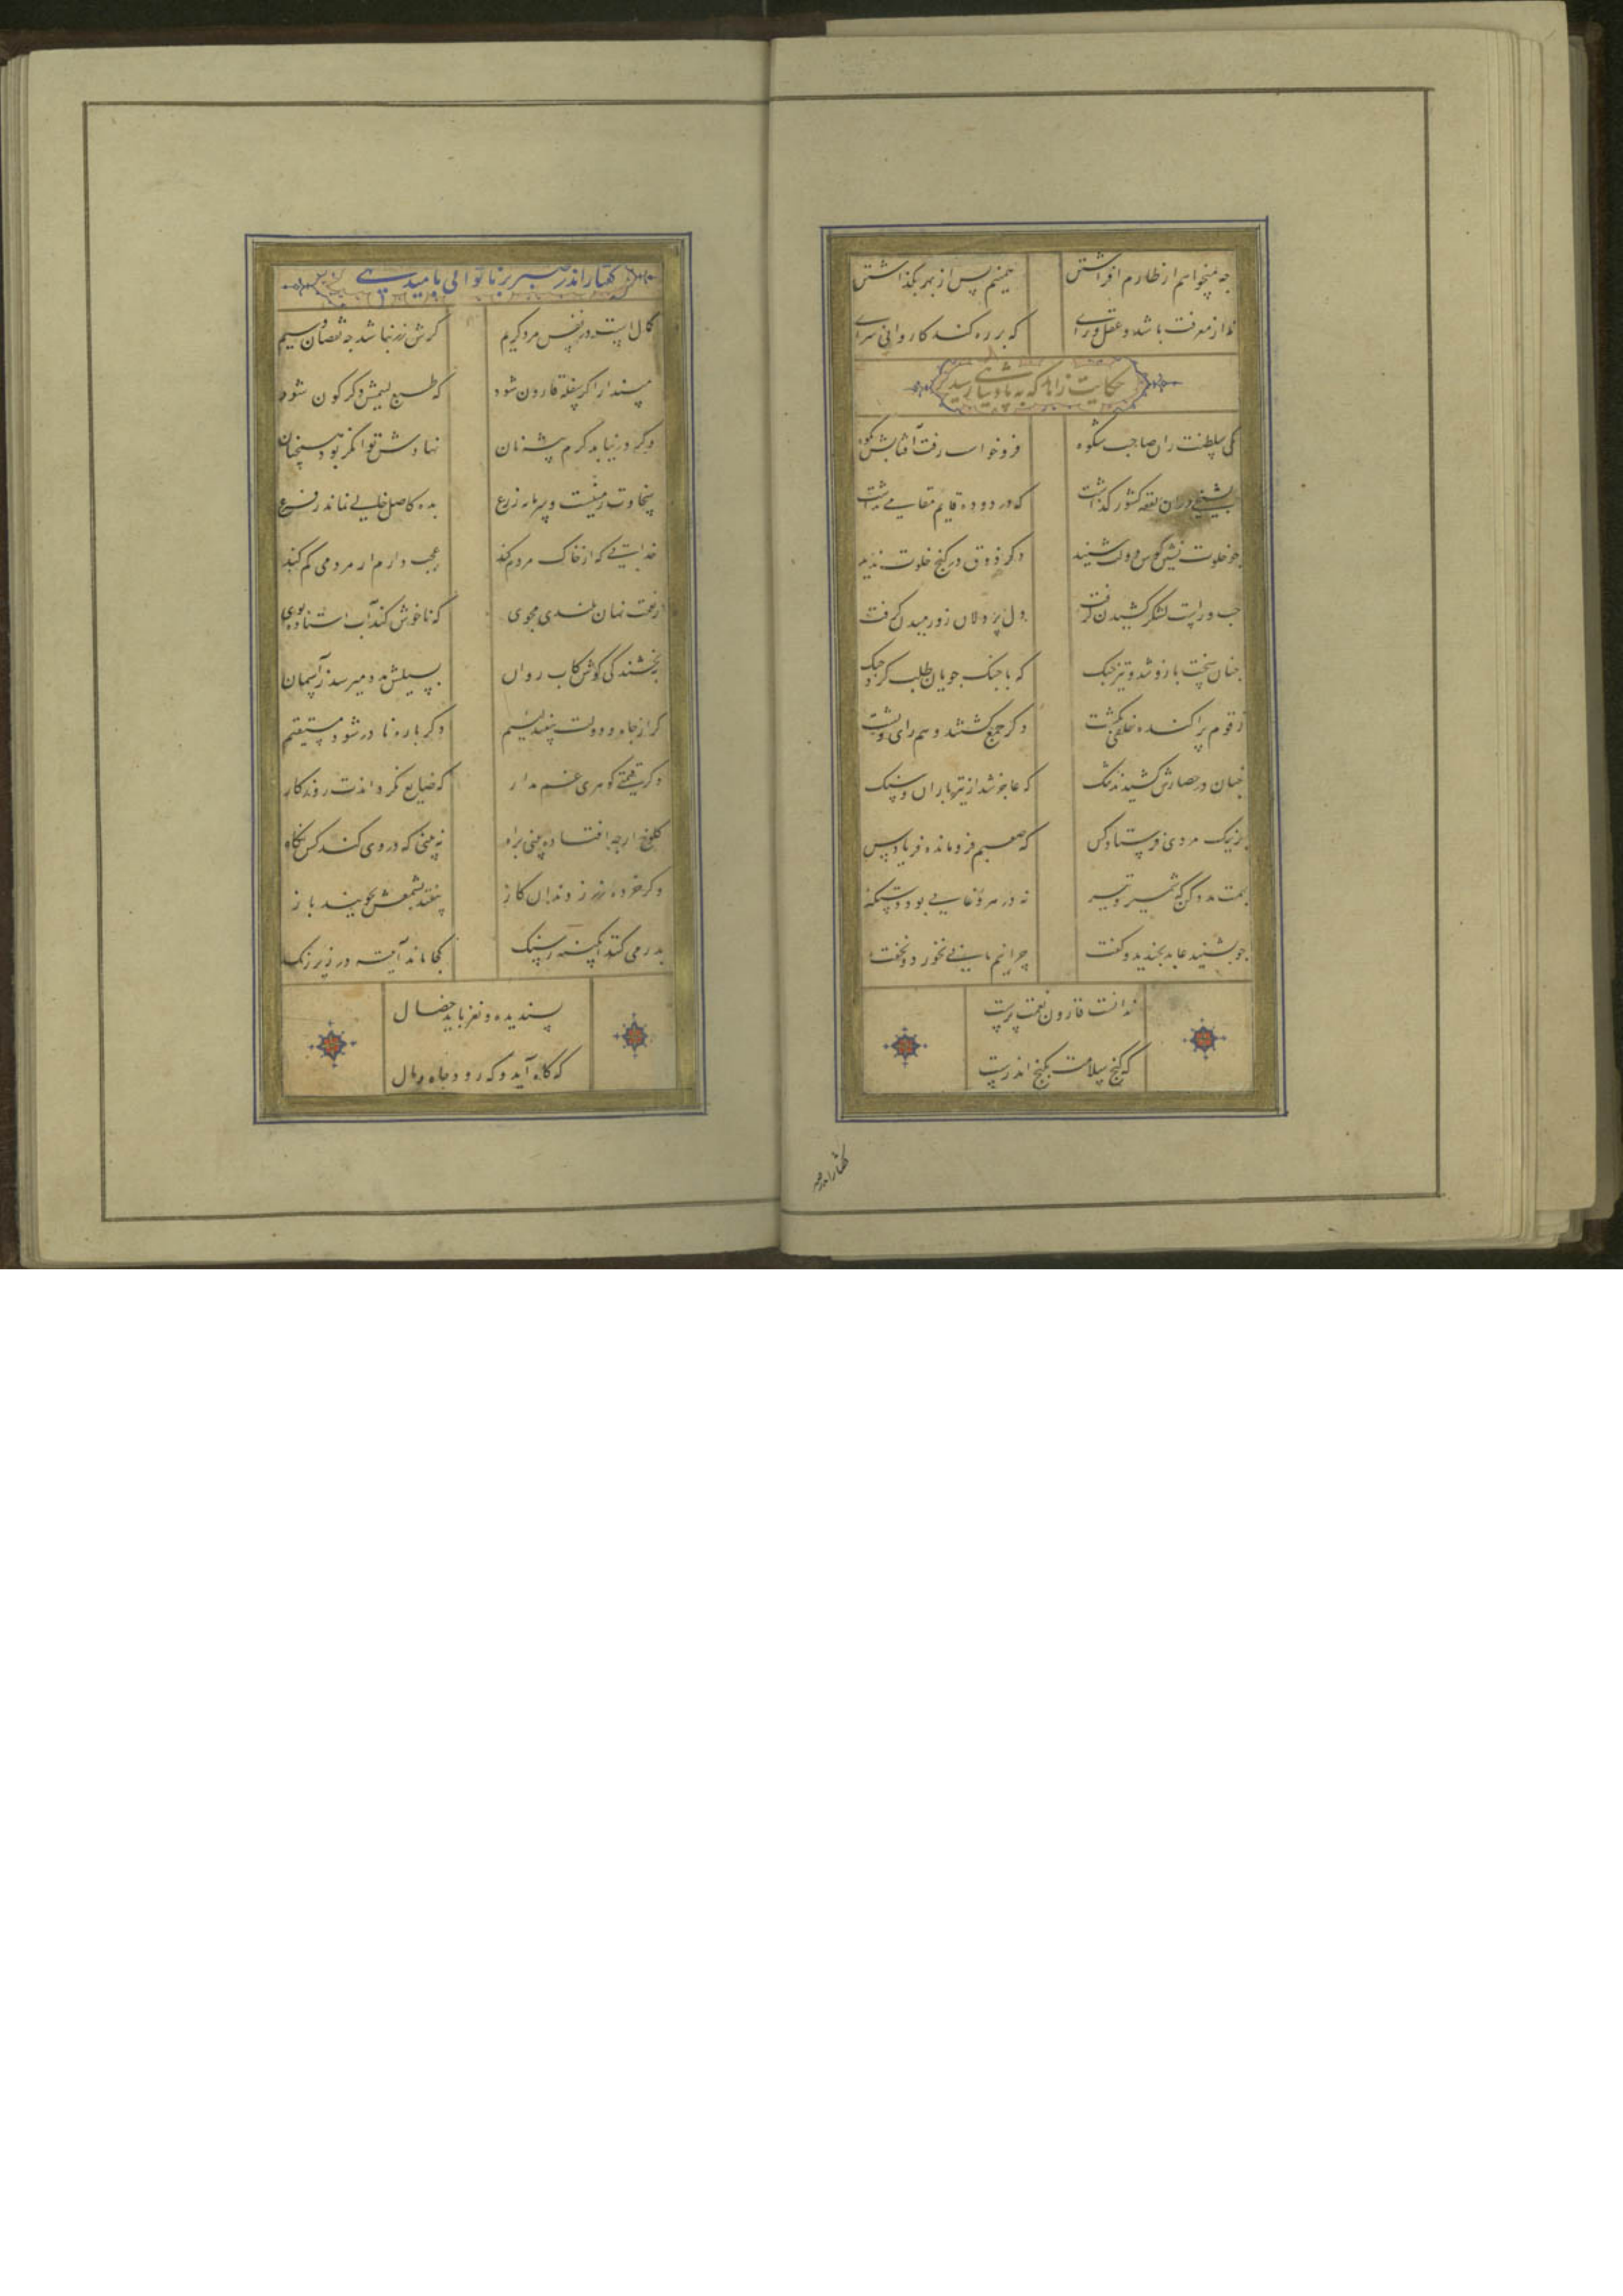 چه میخواهم از طارم افراشتن همینم بس از بهر بگذاشتن
نه از معرفت باشد و عقل و رای که بر ره کند کاروانی سرای
حکایت زاهد که به پادشاهی رسید
یکی سلطنت ران صاحب شکوه فرو خواست رفت آفتابش بکوه
بشیخی دران بقعه کشور گذاشت که در دوده قایم مقامی نداشت
چو خلوت نشین کوس دولت شنید دگر ذوق در کنج خلوت ندید
چپ و راست لشکر کشیدن گرفت دل پر دلان زو رمیدن گرفت
چنان سخت بازو شد و تیز چنگ که با جنگ جویان طلب کرد جنگ
ز قوم پراکنده خلقی بکشت دگر جمع گشتند و هم رای و پشت
چنان در حصارش کشیدند تنگ که عاجز شد از تیرباران و سنگ
بر نیک مردی فرستاد کس که صعبم فرومانده فریاد رس
بهمت مدد کن که شمشیر و تیر نه در هر وغایی بود دستگیر
چو بشنید عابد بخندید و گفت چرا نیم نانی نخورد و نخفت
ندانست قارون نعمت پرست
که گنج سلامت بکنج اندرست
گفتار اندر صبر
گفتار اندر صبر بر ناتوانی بامید بهی
کمال است در نفس مرد کریم گرش زر نباشد چه نقصان و سیم
مپندار اگر سفله قارون شود که طبع لئیمش دگرگون شود
وگر در نیابد کرم پیشه نان نهادش توانگر بود همچنان
سخاوت زمینست و سرمایه زرع بده کاصل خالی نماند ز فرع
خدایی که از خاک مردم کند عجب دارم ار مردمی گم کند
ز نعمت نهادن بلندی مجوی که ناخوش کند آب استاده بوی
ببخشندگی کوش کاب روان بسیلش مدد میرسد ز آسمان
گر از جاه و دولت بیفتد لئیم دگر باره نادر شود مستقیم
وگر قیمتی گوهری غم مدار که ضایع نگرداندت روزگار
کلوخ ار چه افتاده بینی براه نه بینی که در وی کند کس نگاه
وگر خرده زر ز دندان گاز بیفتد بشمعش بجویند باز
بدر می کنند آبگینه ز سنگ کجا ماند آیینه در زیر زنگ
پسندیده و نغز باید خصال
که گاه آید و گه رود جاه و مال